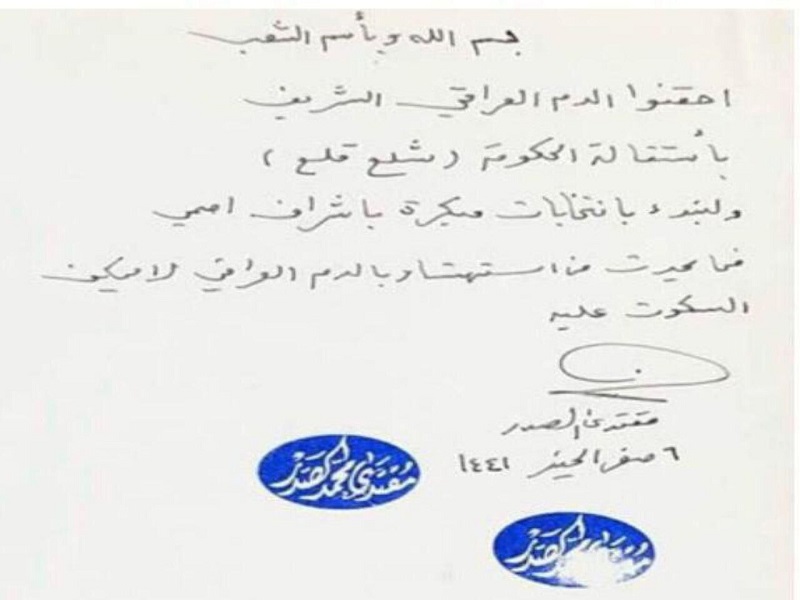 بسم الله وبأسم الشعب
احقنوا الدم العراقي الشريف
بأستقالة الحكومة (شلع قلع)
ولنبدء بانتخابات مبكرة باشراف اممي
فما يحدث من استهتار بالدم العراقي لا يمكن
السكوت عليه
مقتدى الصدر
٦ صفر الخير ١٤٤١
مقتدى محمد الصدر
الصدر